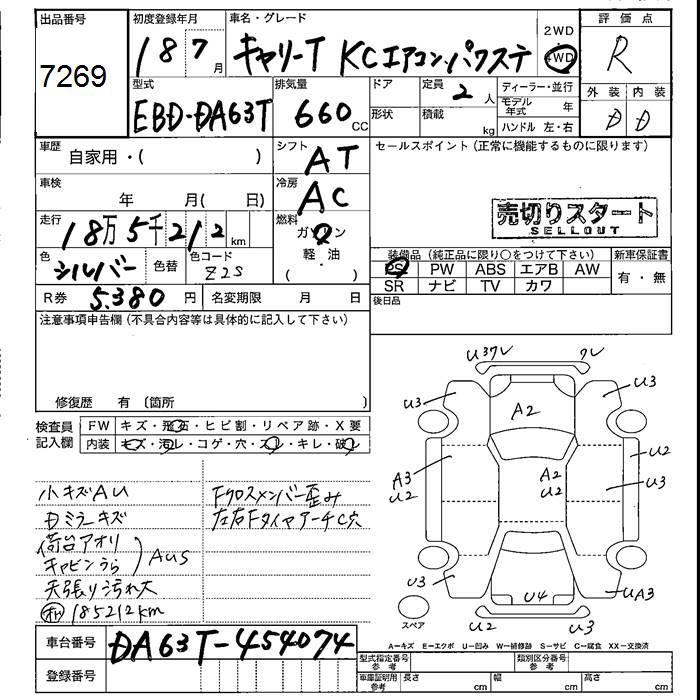 出品番号
7269
初度登録年月
18 7月
車名・グレード
キャリーT KCエアコン・パワステ
2WD
4WD
評価点
R
外装 内装
D D
型式
EBD-DA63T
排気量
660 CC
ドア
形状
定員 2 人
積載 kg
ディーラー・並行
モデル年式 年
ハンドル 左・右
車歴
自家用・( )
シフト
AT
セールスポイント(正常に機能するものに限ります)
車検
年 月( 日)
冷房
AC
売切りスタート
SELLOUT
走行
18万5千212km
燃料
ガソリン
軽・油
( )
装備品(純正品に限り○をつけて下さい)
新車保証書
PS PW ABS エアB AW
SR ナビ TV カワ
有・無
色
シルバー
色替
色コード
Z2S
後日品
R券 5.380 円
名変期限 月 日
注意事項申告欄(不具合内容等は具体的に記入して下さい)
修復歴 有 〔箇所 〕
検査員記入欄
FW キズ・飛石・ヒビ割・リペア跡・X要
内装 キズ・汚レ・コゲ・穴・スレ・キレ・破レ
小キズAU
Dミラーキズ
荷台アオリ
キャビンうら
AUS
天張り汚れ大
185212km
Fクロスメンバー歪み
左右FタイヤアーチC穴
U3 クレ
U3 U3
A2
A3 U2
A2 U2
U2
U3
U3
U4
UA3
U2 U3
スペア
A−キズ E−エクボ U−凹み W−補修跡 S−サビ C−腐食 XX−交換済
車台番号
DA63T-454074
登録番号
型式指定番号 参考
類別区分番号 参考
車庫証明用 参考
長さ cm 幅 cm 高さ cm